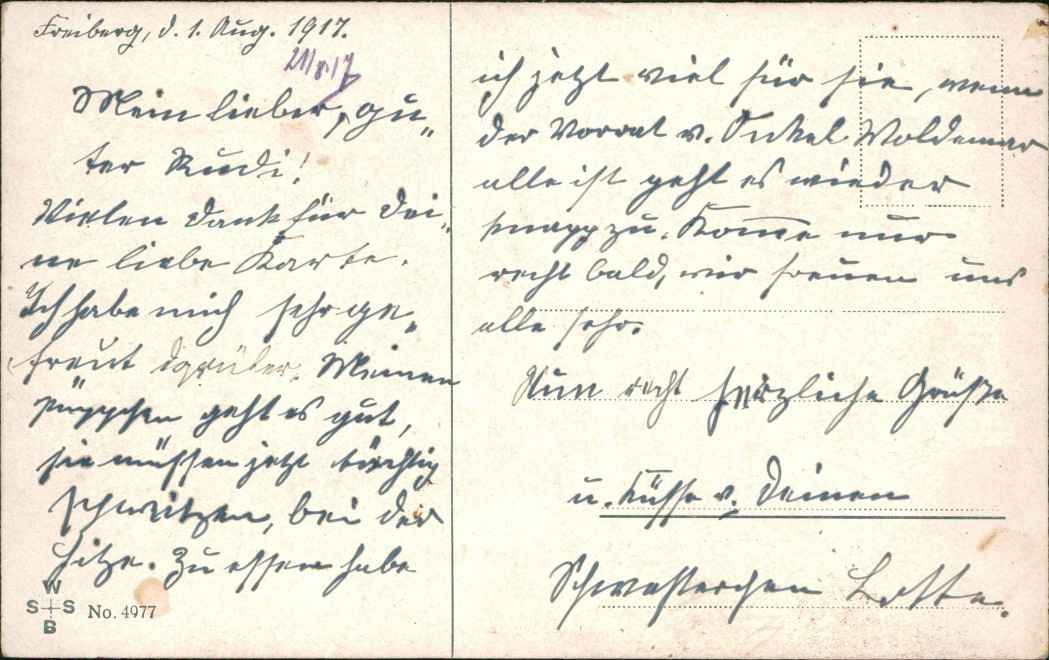 Freiberg, d. 1. Aug. 1917.
21/8.17
Mein lieber, gu„
ter Rudi!
Vielen Dank für Dei„
ne liebe Karte.
Ich habe mich sehr ge„
freut darüber. Meinen
Püppchen geht es gut,
sie müssen jetzt tüchtig
schwitzen, bei der
Hitze. Zu essen habe
W
S S
B
No. 4977
ich jetzt viel für sie, wenn
der Vorrat v. Onkel Woldemar
alle ist geht es wieder
knapp zu. Kom̅e nur
recht bald, wir freuen uns
alle sehr.
Nun recht herzliche Grüße
u. Küsse v. Deinen
Schwesterchen Lotte.